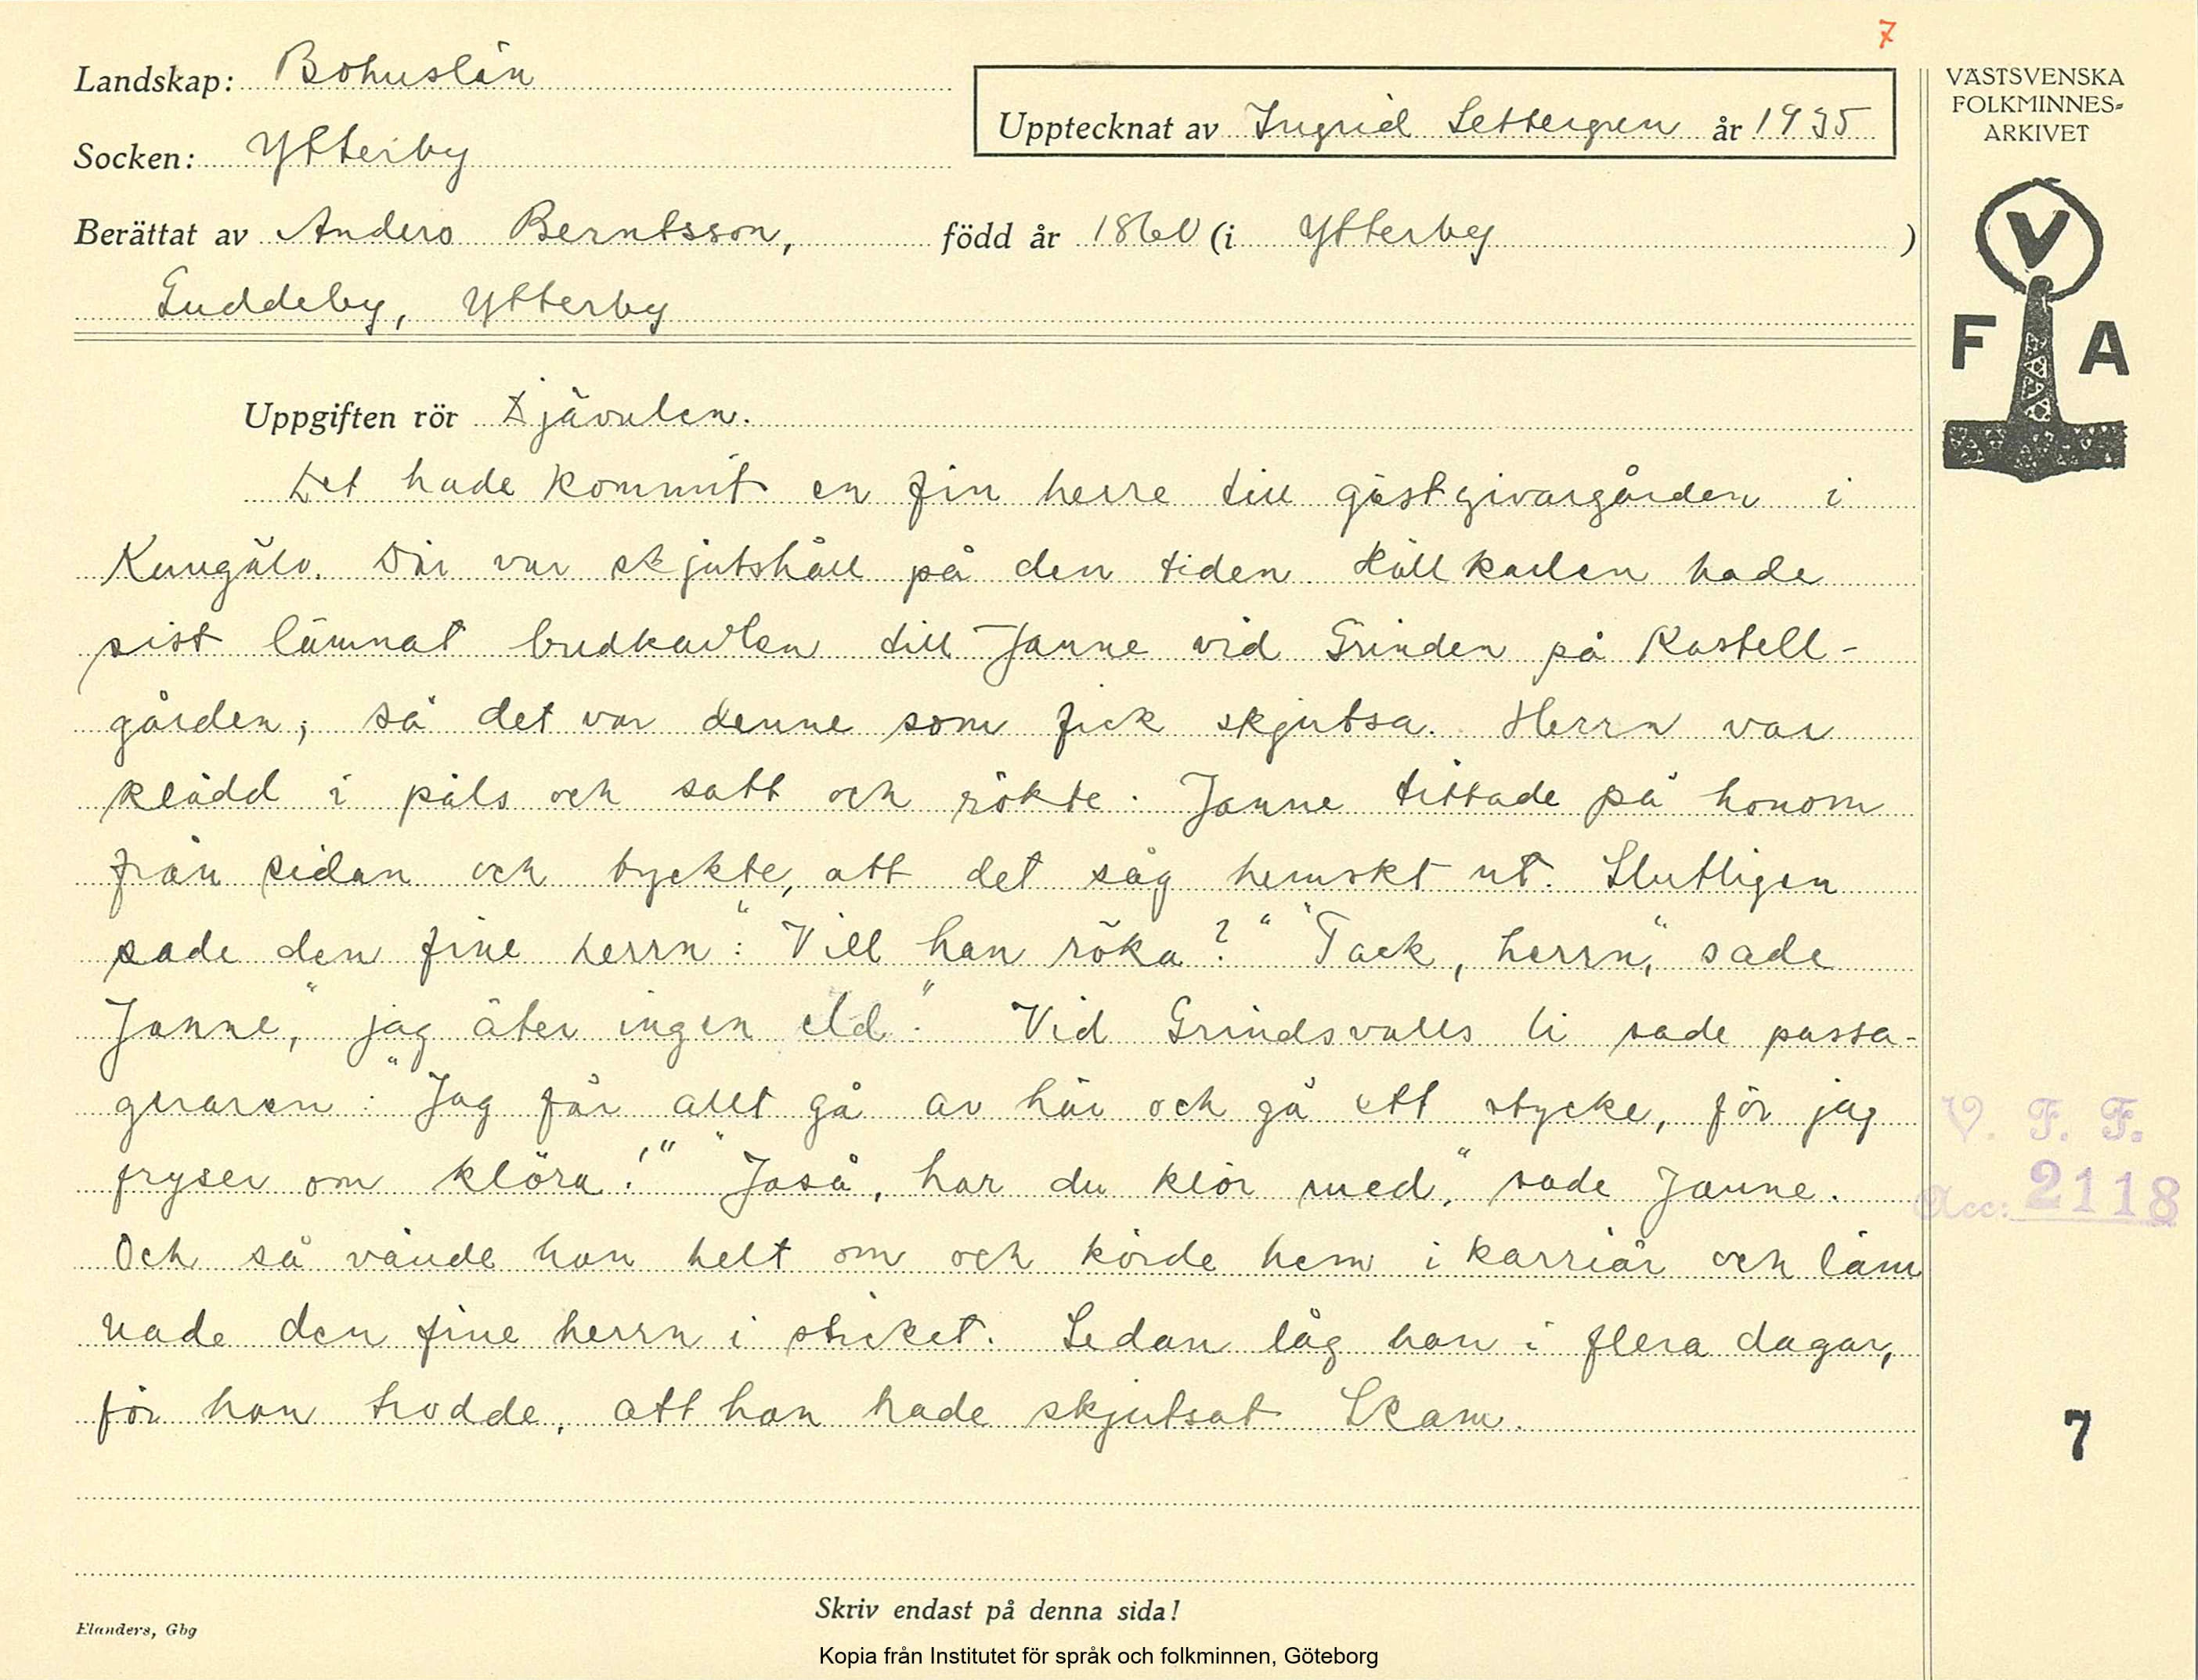 7
Landskap: Bohuslän
Socken: Ytterby
Upptecknat av Ingrid Settergren år 1935
Berättat av Anders Berntsson, född år 1860 (i Ytterby )
Guddeby, Ytterby
VÄSTSVENSKA
FOLKMINNES-
ARKIVET
V
F A
Uppgiften rör Djävulen.
Det hade kommit en fin herre till gästgivargården i
Kungälv. Där var skjutshåll på den tiden. Hållkarlen hade
sist lämnat budkavlen till Janne vid Grinden på Kastell-
gården, så det var denne som fick skjutsa. Herrn var
klädd i päls och satt och rökte. Janne tittade på honom
från sidan och tyckte, att det såg hemskt ut. Slutligen
sade den fine herrn: "Vill han röka?" "Tack, herrn," sade
Janne, "jag äter ingen eld." Vid Grindsvalls li sade passa-
geraren: "Jag får allt gå av här och gå ett stycke, för jag
fryser om klöra!" "Jaså, har du klör med," sade Janne.
Och så vände han helt om och körde hem i karriär och läm
nade den fine herrn i sticket. Sedan låg han i flera dagar,
för han trodde, att han hade skjutsat Skam.
V. F. F.
Acc: 2118
7
Skriv endast på denna sida!
Elanders, Gbg
Kopia från Institutet för språk och folkminnen, Göteborg